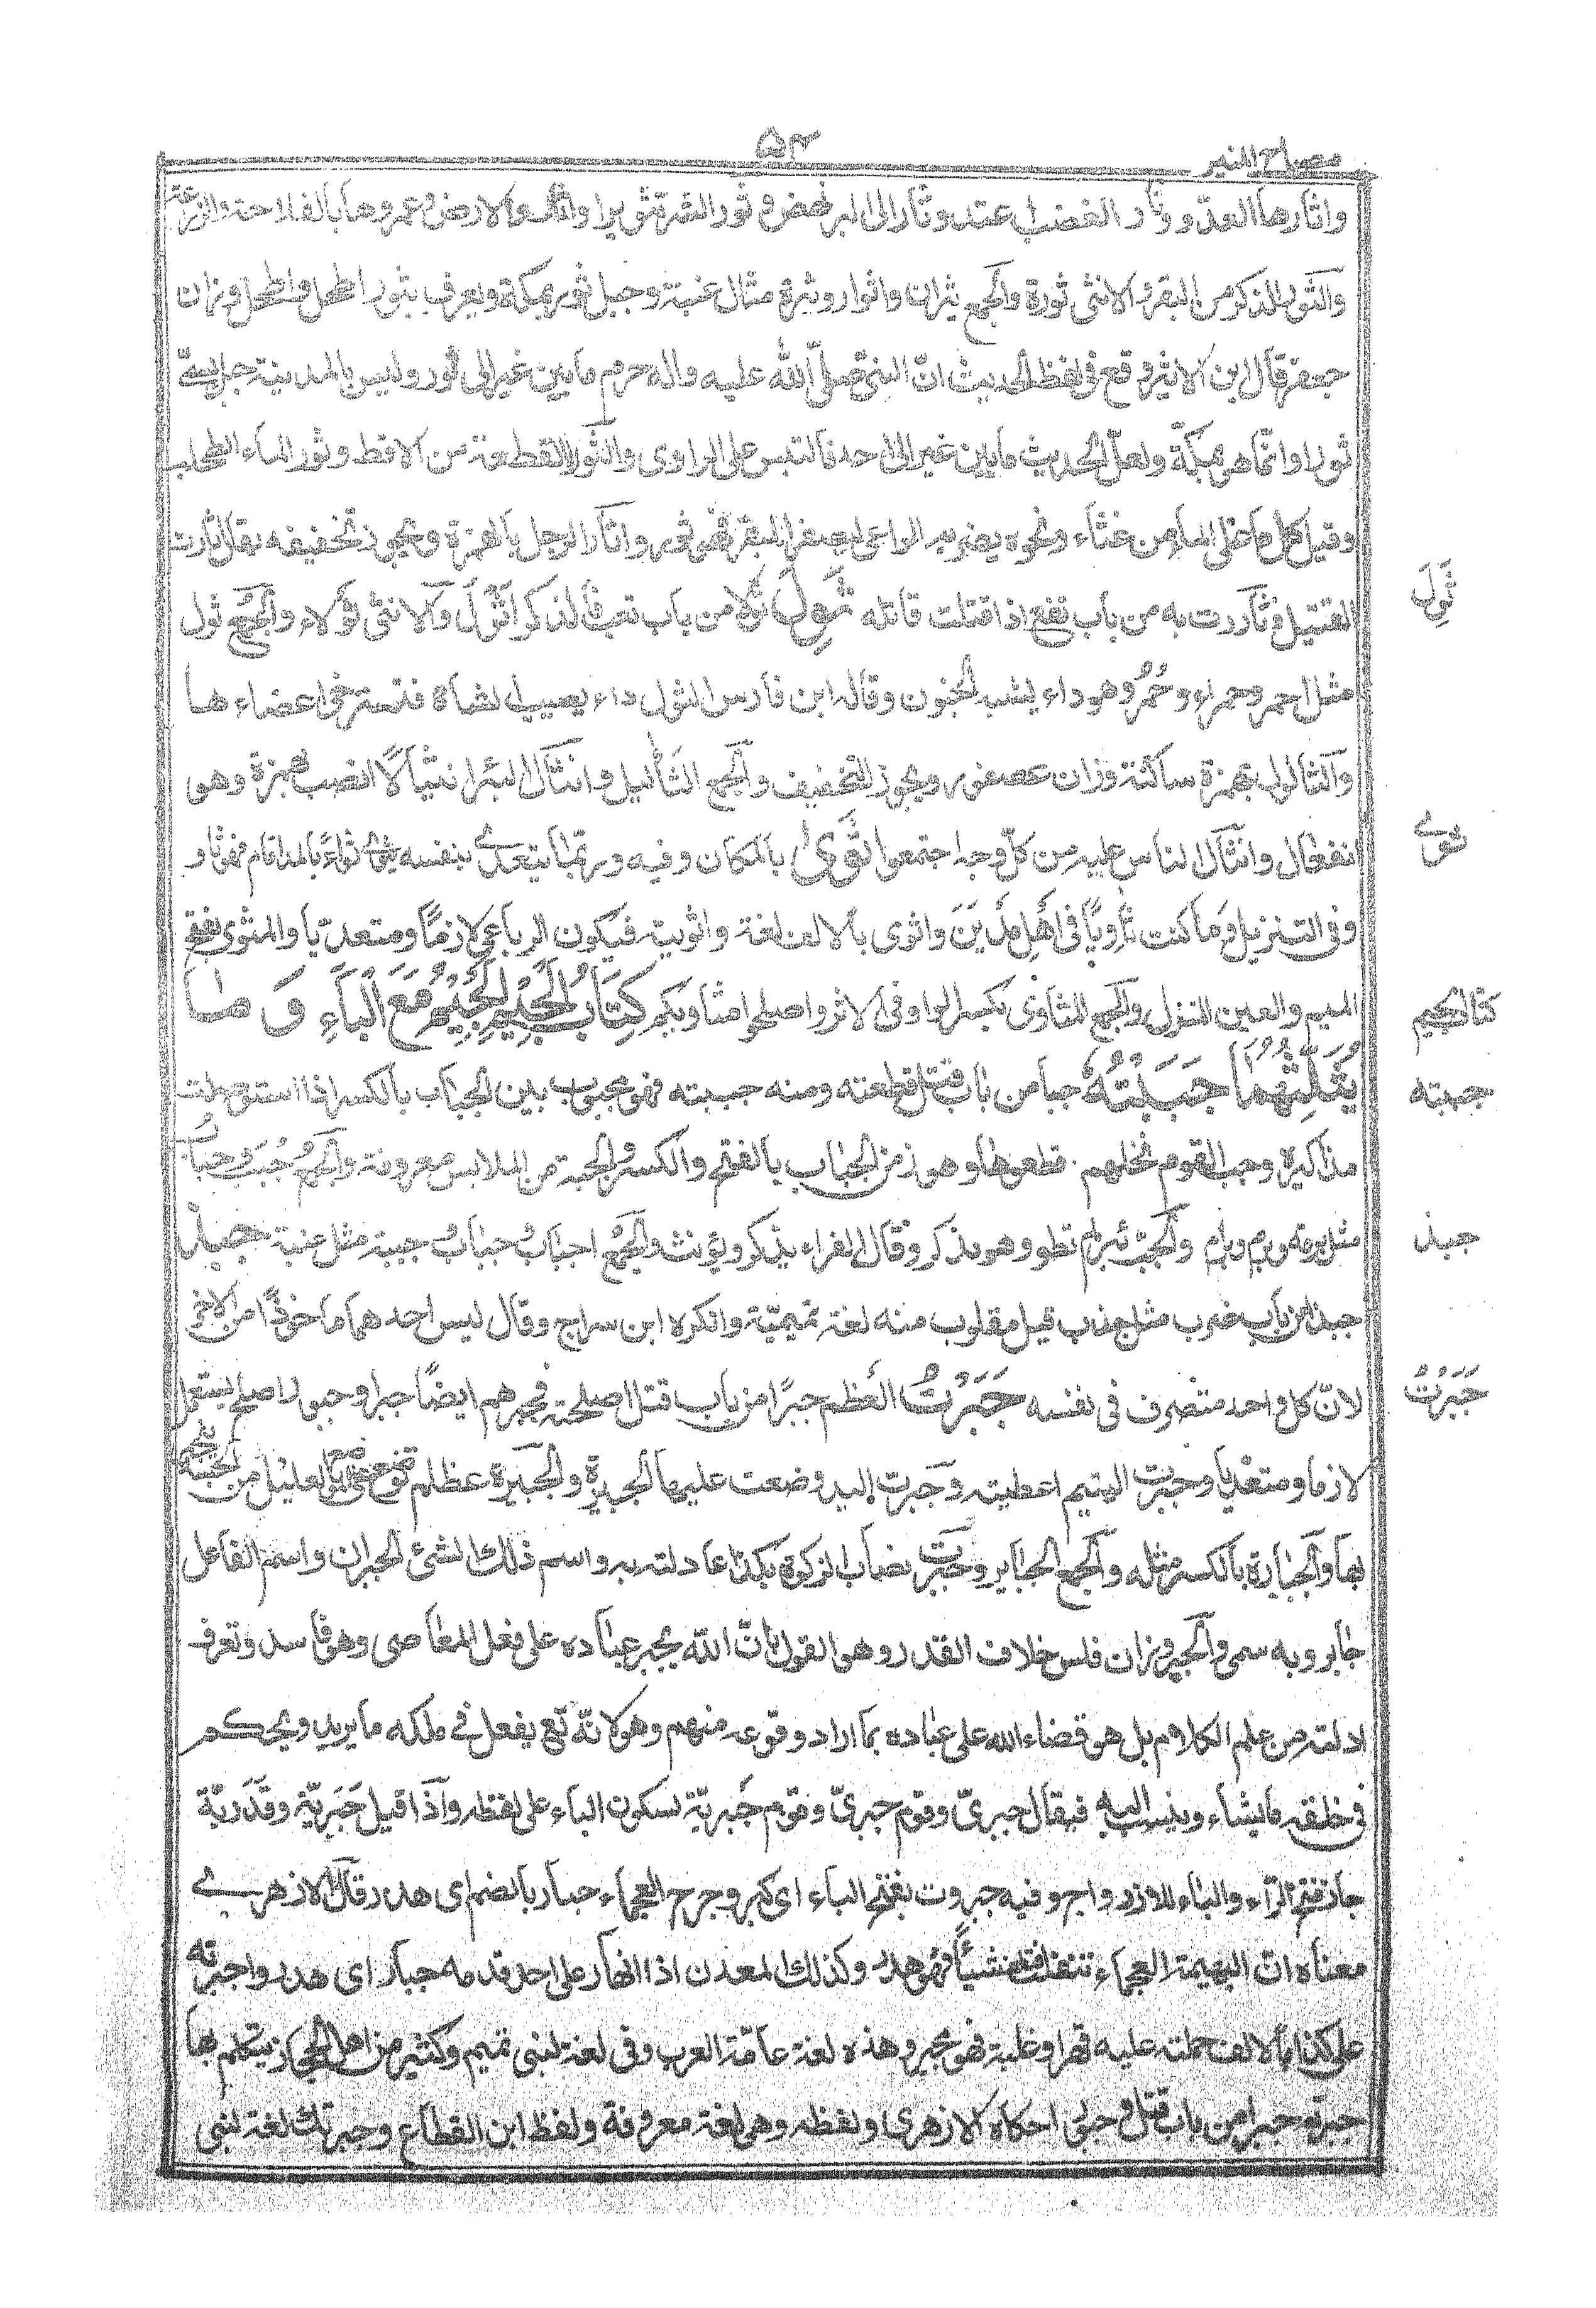 مصباح المنير
۵۴
واثارها العدوّ وثار الغضب احتد وثار الى الشر نهض وثور الشر تثويرا واثاروا الارض عمروها بالفلاحة والزراعة
والثور الذكر من البقر والانثى ثورة والجمع ثيران واثوار وثيرة مثال عنبة وجبل ثور بمكة ويعرف بثور اطحل واطحل وزان
جعفر قال ابن الاثير وقع فى لفظ الحديث انّ النبىّ صلّى اللّه عليه واله حرم ما بين عير الى ثور وليس بالمدينة جبل يسمّے
ثورا وانّما هو بمكّة ولعلّ الحديث ما بين عير الى احد فالتبس على الراوى والثور القطعة من الاقط وثور الماء الطحلب
وقيل كل ما على الماء من غثاء ونحوه يضربه الراعى ليصفو للبقر فهو ثور واثأر الرجل بالهمزة ويجوز تخفيفه يقال ثارت
القتيل وثأرت به من باب نفع اذا قتلت قاتله ثَوِلَ ثولا من باب تعب فالذكر اَثْوَلُ والانثى ثولاء والجمع ثول
ثَوِلَ
مثل احمر وحمراء وحُمُر وهو داء يشبه الجنون وقال ابن فارس الثول داء يصيب الشاة فتسترخى اعضاءها
والثالول بهمزة ساكنة وزان عصفور ويجوز التخفيف والجمع الثآليل وانثال البئر انثيالًا انصب بمرة وهو
انفعال وانثال الناس عليه من كلّ وجه اجتمعوا ثَوىٰ بالمكان وفيه وربّما يتعدّے بنفسه يثوى ثواءً بالمد اقام فهو ثاو
ثوے
وفى التنزيل وَمَا كنت ثَاوِيًا فى اَهْلِ مَدْيَنَ واثوى بالالف لغة واثويته فيكون الرباعى لازمًا ومتعدّيا والمثوى بفتح
الميم والعين المنزل والجمع المثاوى بكسر الواو فى الاثر واصلحوا مثاويكم كِتَابُ الْجِيْمِ الْجِيْمُ مَعَ الْبَآءِ وَمَا
كتاب الجيم
يُثَلِّثُهُمَا جَبَبْتُهُ جبا من باب قتل قطعته ومنه جببته فهو مجبوب بين الجباب بالكسر اذا استؤصلت
جببته
مذاكيره وجب القوم نخلهم قطعوها وهو زمن الجباب بالفتح والكسر والجبة من الملابس معروفة والجمع جُبَب وجِبَاب
مثل برمة وبرم وبرام والجبّ بئر لم تطو وهو مذكر وقال الفراء يذكر ويؤنث والجمع اجباب وجباب وجببة مثل عنبة جبذ
جبذ
جبذا من باب ضرب مثل جذب قيل مقلوب منه لغة تميميّة وانكره ابن سراج وقال ليس احدهما ماخوذًا من الاخر
لانّ كل واحد متصرف فى نفسه جَبَرْتُ العظم جبرًا من باب قتل اصلحته فجبر هو ايضًا جبرا وجبورا صلح يستعمل
جَبَرْتُ
لازما ومتعديا وجبرت اليتيم اعطيته وجبرت اليد وضعت عليها الجبيرة والجبيرة عظام توضع على الموضع العليل من الجسد ينجبر
بها والجبارة بالكسر مثله والجمع الجباير وجبرت نصاب الزكوة بكذا عادلته به واسم ذلك الشئ الجبران واسم الفاعل
جابر وبه سمى والجبر وزان فلس خلاف القدر وهو القول بانّ اللّه يجبر عباده على فعل المعاصى وهو فاسد وتعرف
ادلته من علم الكلام بل هو قضاء الله على عباده بما اراد وقوعه منهم وهو لانّه تع يفعل فے ملكه ما يريد ويحكم
فى خلقه ما يشاء وينسب اليه فيقال جبرىّ وقوم جبرىّ وقوم جَبريّة بسكون الباء على لفظه واذا قيل جَبَريّة وقَدَريّة
جاز فتح الراء والباء للازدواج وفيه جبروت بفتح الباء اى كبر وجرح العجماء جبار بالضم اى هدر قال الازهرے
معناه ان البهيمة العجماء تنفلت فتتلف شيئًا فهو هدر وكذلك المعدن اذا انهار على احد فدمه جبار اى هدر واجبرته
على كذا بالالف حملته عليه قهرا وغلبة فهو مجبر وهذه لغة عامّة العرب وفى لغة لبنى تميم وكثير من اهل الحجاز يتكلم بها
جبرته جبرا من باب قتل وجبورا حكاه الازهرى ولفظه وهى لغة معروفة ولفظ ابن القطاع وجبرتك لغة لبنى